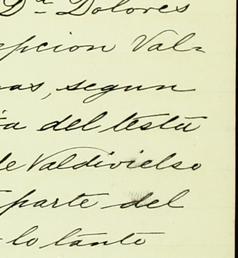 Dª Dolores
epcion Val=
nas, segun
ia del testa
de Valdivielso
parte del
lo tanto